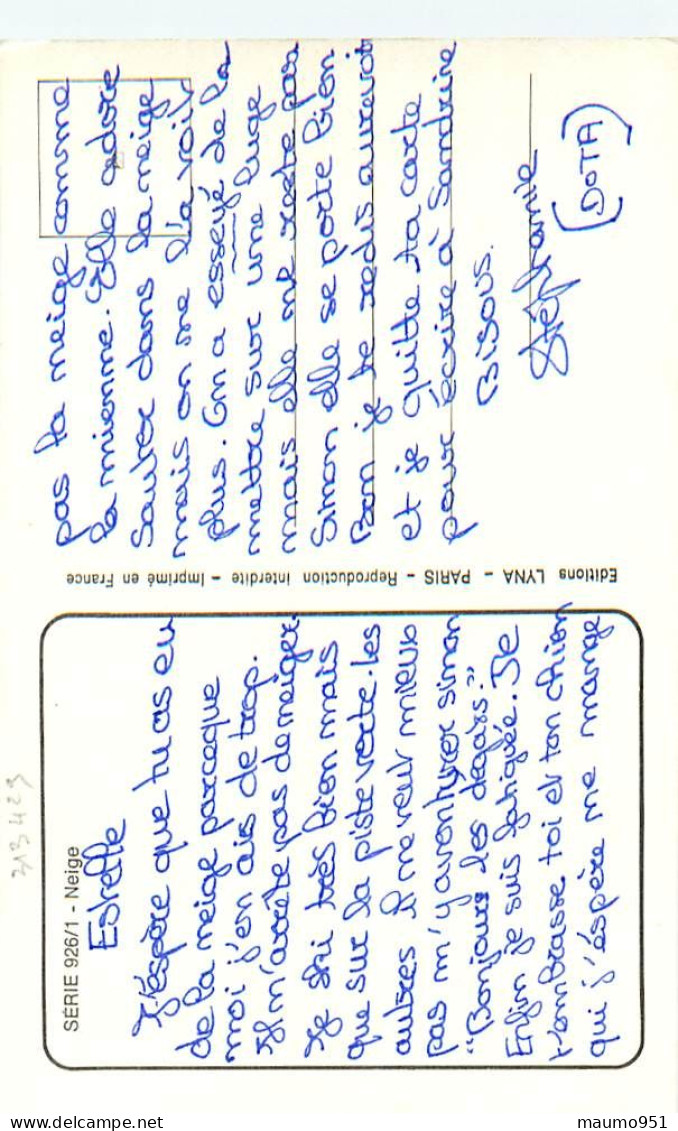 SÉRIE 926/1 - Neige
Estelle
J'éspère que tu as eu
de la neige parceque
moi j'en ais de trop.
Il m'arrête pas de neiger.
Je ski très bien mais
que sur la piste verte. les
autres il me veut mieux
pas m'y aventurer simon
"Bonjours les dégars".
Enfin je suis fatiguée. Je
t'embrasse toi et ton chien
qui j'éspère me mange
pas la neige comme
la mienne. Elle adore
Sauter dans la neige
mais on me l'a voit
plus. On a esseyé de la
mettre sur une luge
mais elle me reste pas
Simon elle se porte bien
Bon je te redis aurevoir
et je quitte ta carte
pour écrire à Sandrine
Bisous.
Stéphanie
(DOTA)
Editions LYNA - PARIS - Reproduction interdite - Imprimé en France
313429
delcampe.net
maumo951